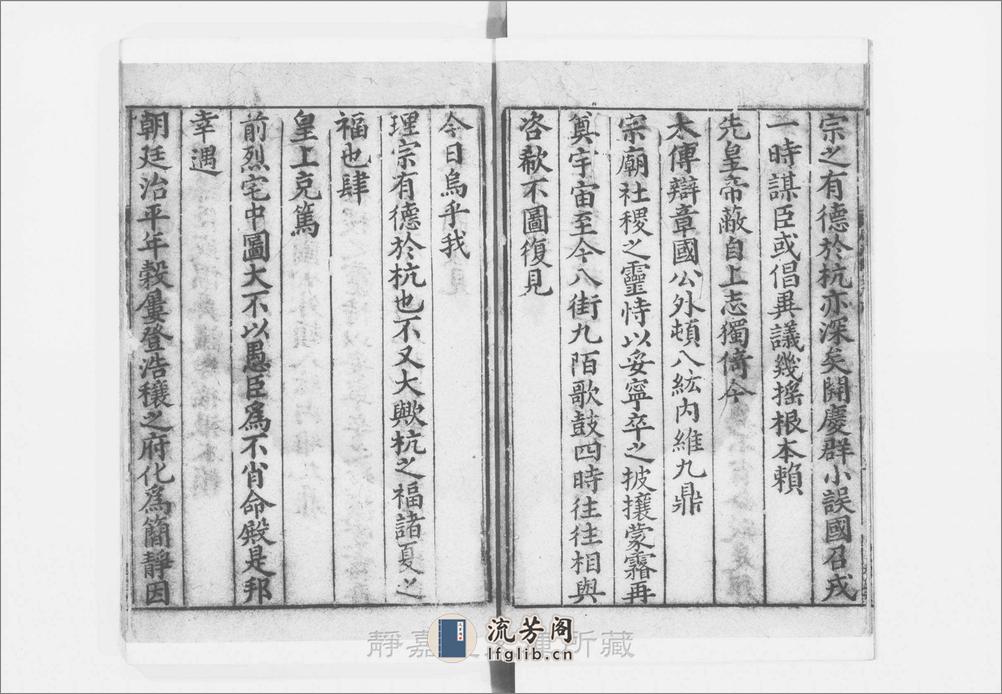 宗之有德於杭亦深矣開慶群小誤國召戎
一時謀臣或倡異議幾搖根本賴
先皇帝蔽自上志獨倚今
太傅辯章國公外頓八紘内維九鼎
宗廟社稷之靈恃以妥寧卒之披攘蒙霧再
奠宇宙至今八街九陌歌鼓四時往往相與
咨欷不圖復見
今日烏乎我
理宗有德於杭也不又大歟杭之福諸夏之
福也肆
皇上克篤
前烈宅中圖大不以愚臣爲不肖命殿是邦
幸遇
朝廷治平年穀屢登浩穰之府化爲簡靜因
流芳阁
lfglib.cn
靜嘉
所藏